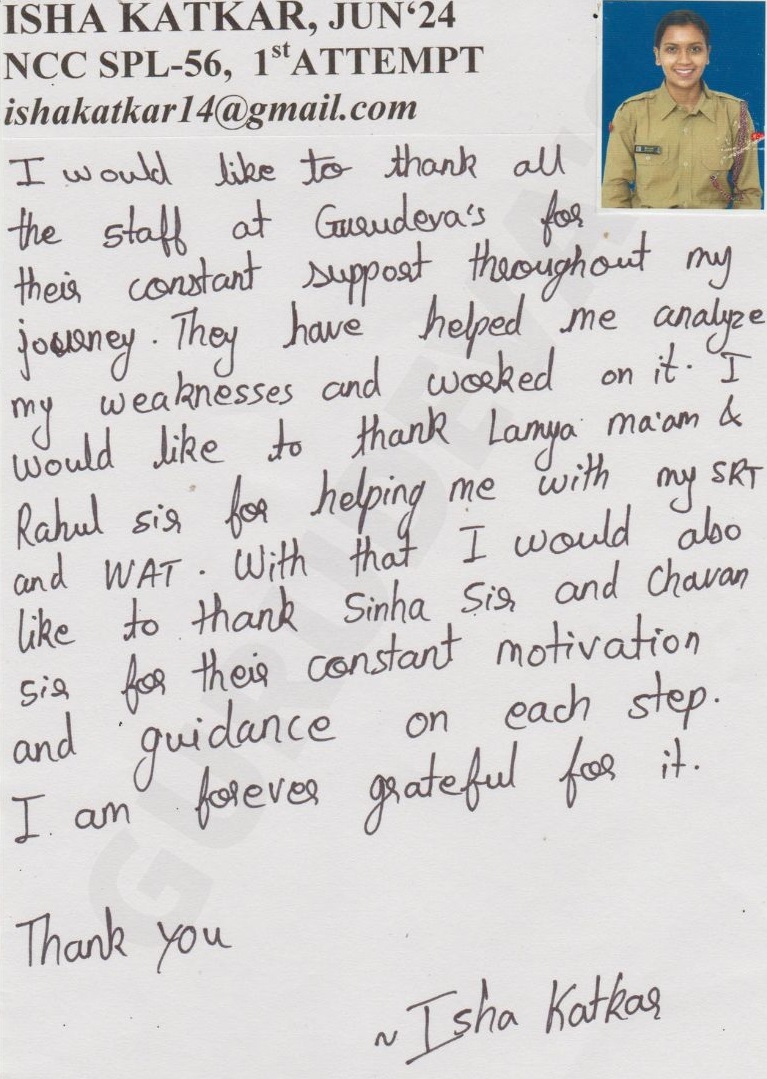 ISHA KATKAR, JUN‘24
NCC SPL-56, 1st ATTEMPT
ishakatkar14@gmail.com
I would like to thank all
the staff at Gurudeva's for
their constant support throughout my
journey. They have helped me analyze
my weaknesses and worked on it. I
would like to thank Lamya ma'am &
Rahul sir for helping me with my SRT
and WAT. With that I would also
like to thank Sinha Sir and Chavan
sir for their constant motivation
and guidance on each step.
I am forever grateful for it.
Thank you
~ Isha Katkar
GURUDEVA'S